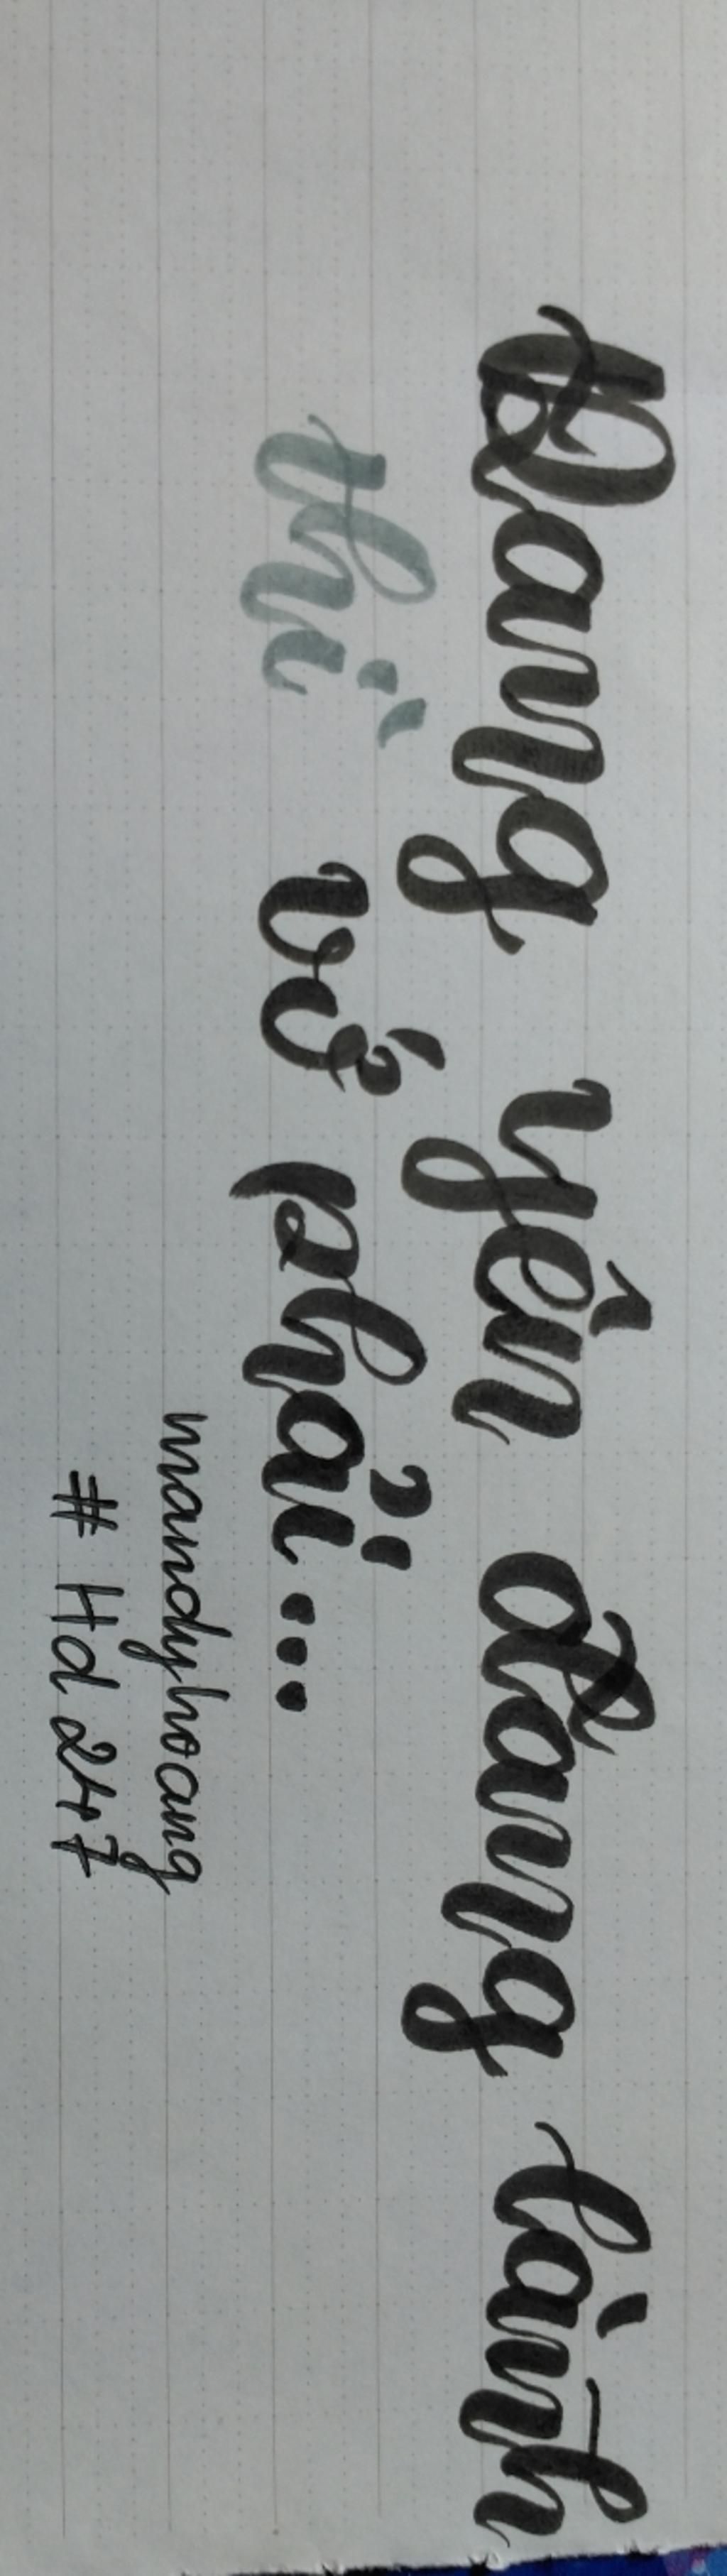 Đang yên đang lành
thì vớ phải...
mandyhoang
# Hd 247